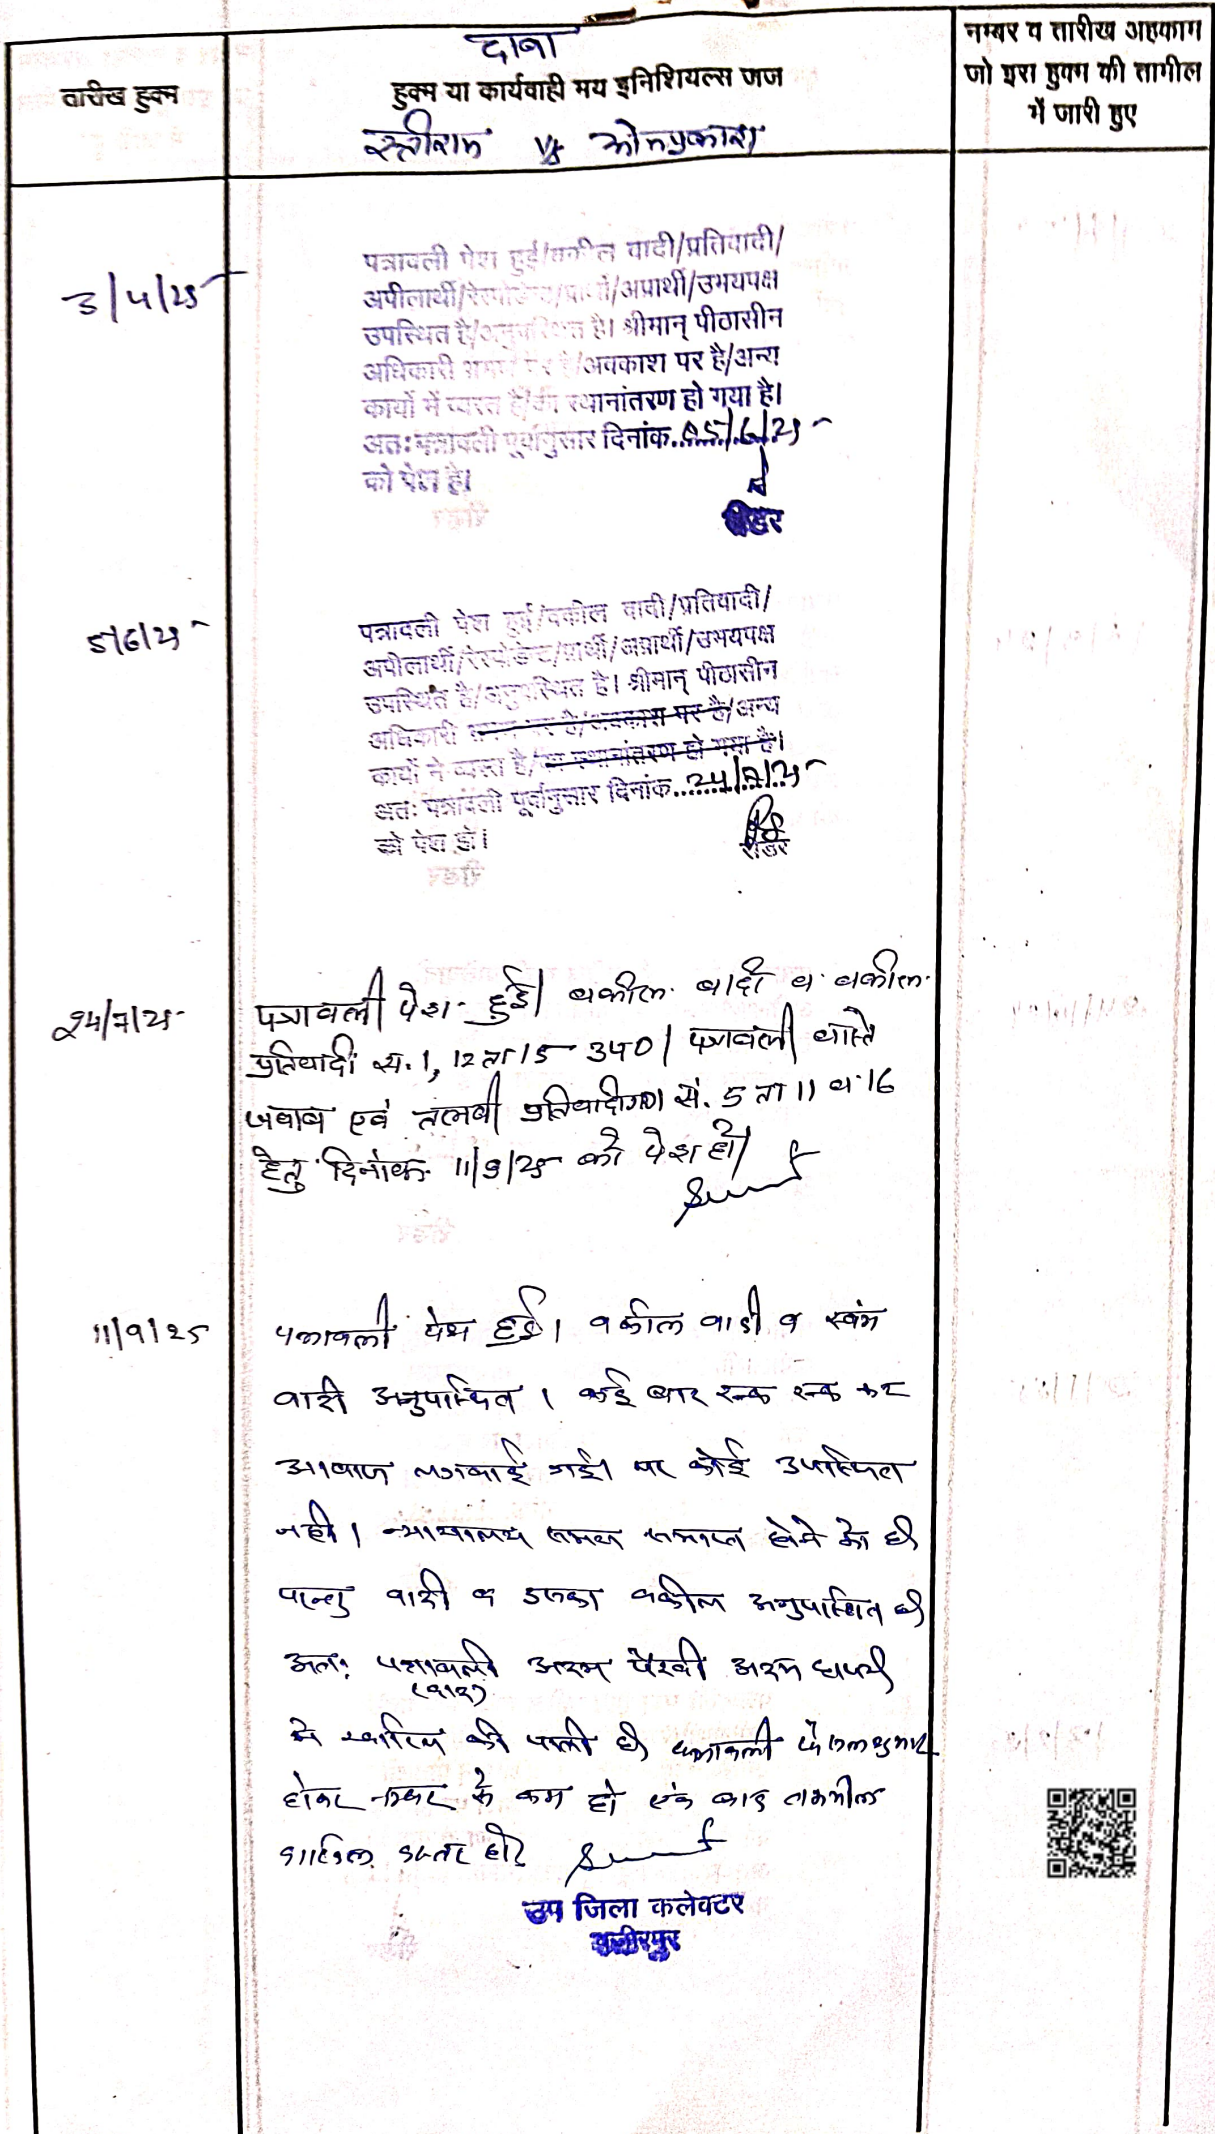 दावा
तारीख हुक्म
हुक्म या कार्यवाही मय इनिशियल्स जज
नम्बर व तारीख अहकाम
जो इस हुक्म की तामील
में जारी हुए
V/s ओमप्रकाश
3/4/25
पत्रावली पेश हुई/वकील वादी/प्रतिवादी/
अपीलार्थी/रेस्पोडेन्ट/प्रार्थी/अप्रार्थी/उभयपक्ष
उपस्थित है/अनुपस्थित है। श्रीमान् पीठासीन
अधिकारी भ्रमण पर है/अवकाश पर है/अन्य
कार्यो में व्यस्त है/का स्थानांतरण हो गया है।
अतः पत्रावली पूर्वानुसार दिनांक..05/6/25
को पेश हो।
रीडर
5/6/25
पत्रावली पेश हुई/वकील वादी/प्रतिवादी/
अपीलार्थी/रेस्पोडेन्ट/प्रार्थी/अप्रार्थी/उभयपक्ष
उपस्थित है/अनुपस्थित है। श्रीमान् पीठासीन
अधिकारी भ्रमण पर है/अवकाश पर है/अन्य
कार्यो में व्यस्त है/का स्थानांतरण हो गया है।
अतः पत्रावली पूर्वानुसार दिनांक..24/7/25
को पेश हो।
रीडर
24/7/25
पत्रावली पेश हुई। वकील वादी व वकील
प्रतिवादी सं. 1, 12 ता 15 उप0। पत्रावली वास्ते
जवाब एवं तलबी प्रतिवादीगण सं. 5 ता 11 व 16
हेतु दिनांक 11/9/25 को पेश हो।
11/9/25
पत्रावली पेश हुई। वकील वादी व स्वंम
वादी अनुपस्थित। कई बार रूक रूक कर
आवाज लगवाई गई। पर कोई उपस्थित
नही। न्यायालय समय समाप्त होने को है
परन्तु वादी व उसका वकील अनुपस्थित है
अतः पत्रावली अदम पैरवी अदम हाजरी
(वाद)
मे खारिज की जाती है पत्रावली फैसलशुमार
होकर नम्बर से कम हो एवं बाद तकमील
दाखिल दफ्तर हो।
उप जिला कलेक्टर
वजीरपुर